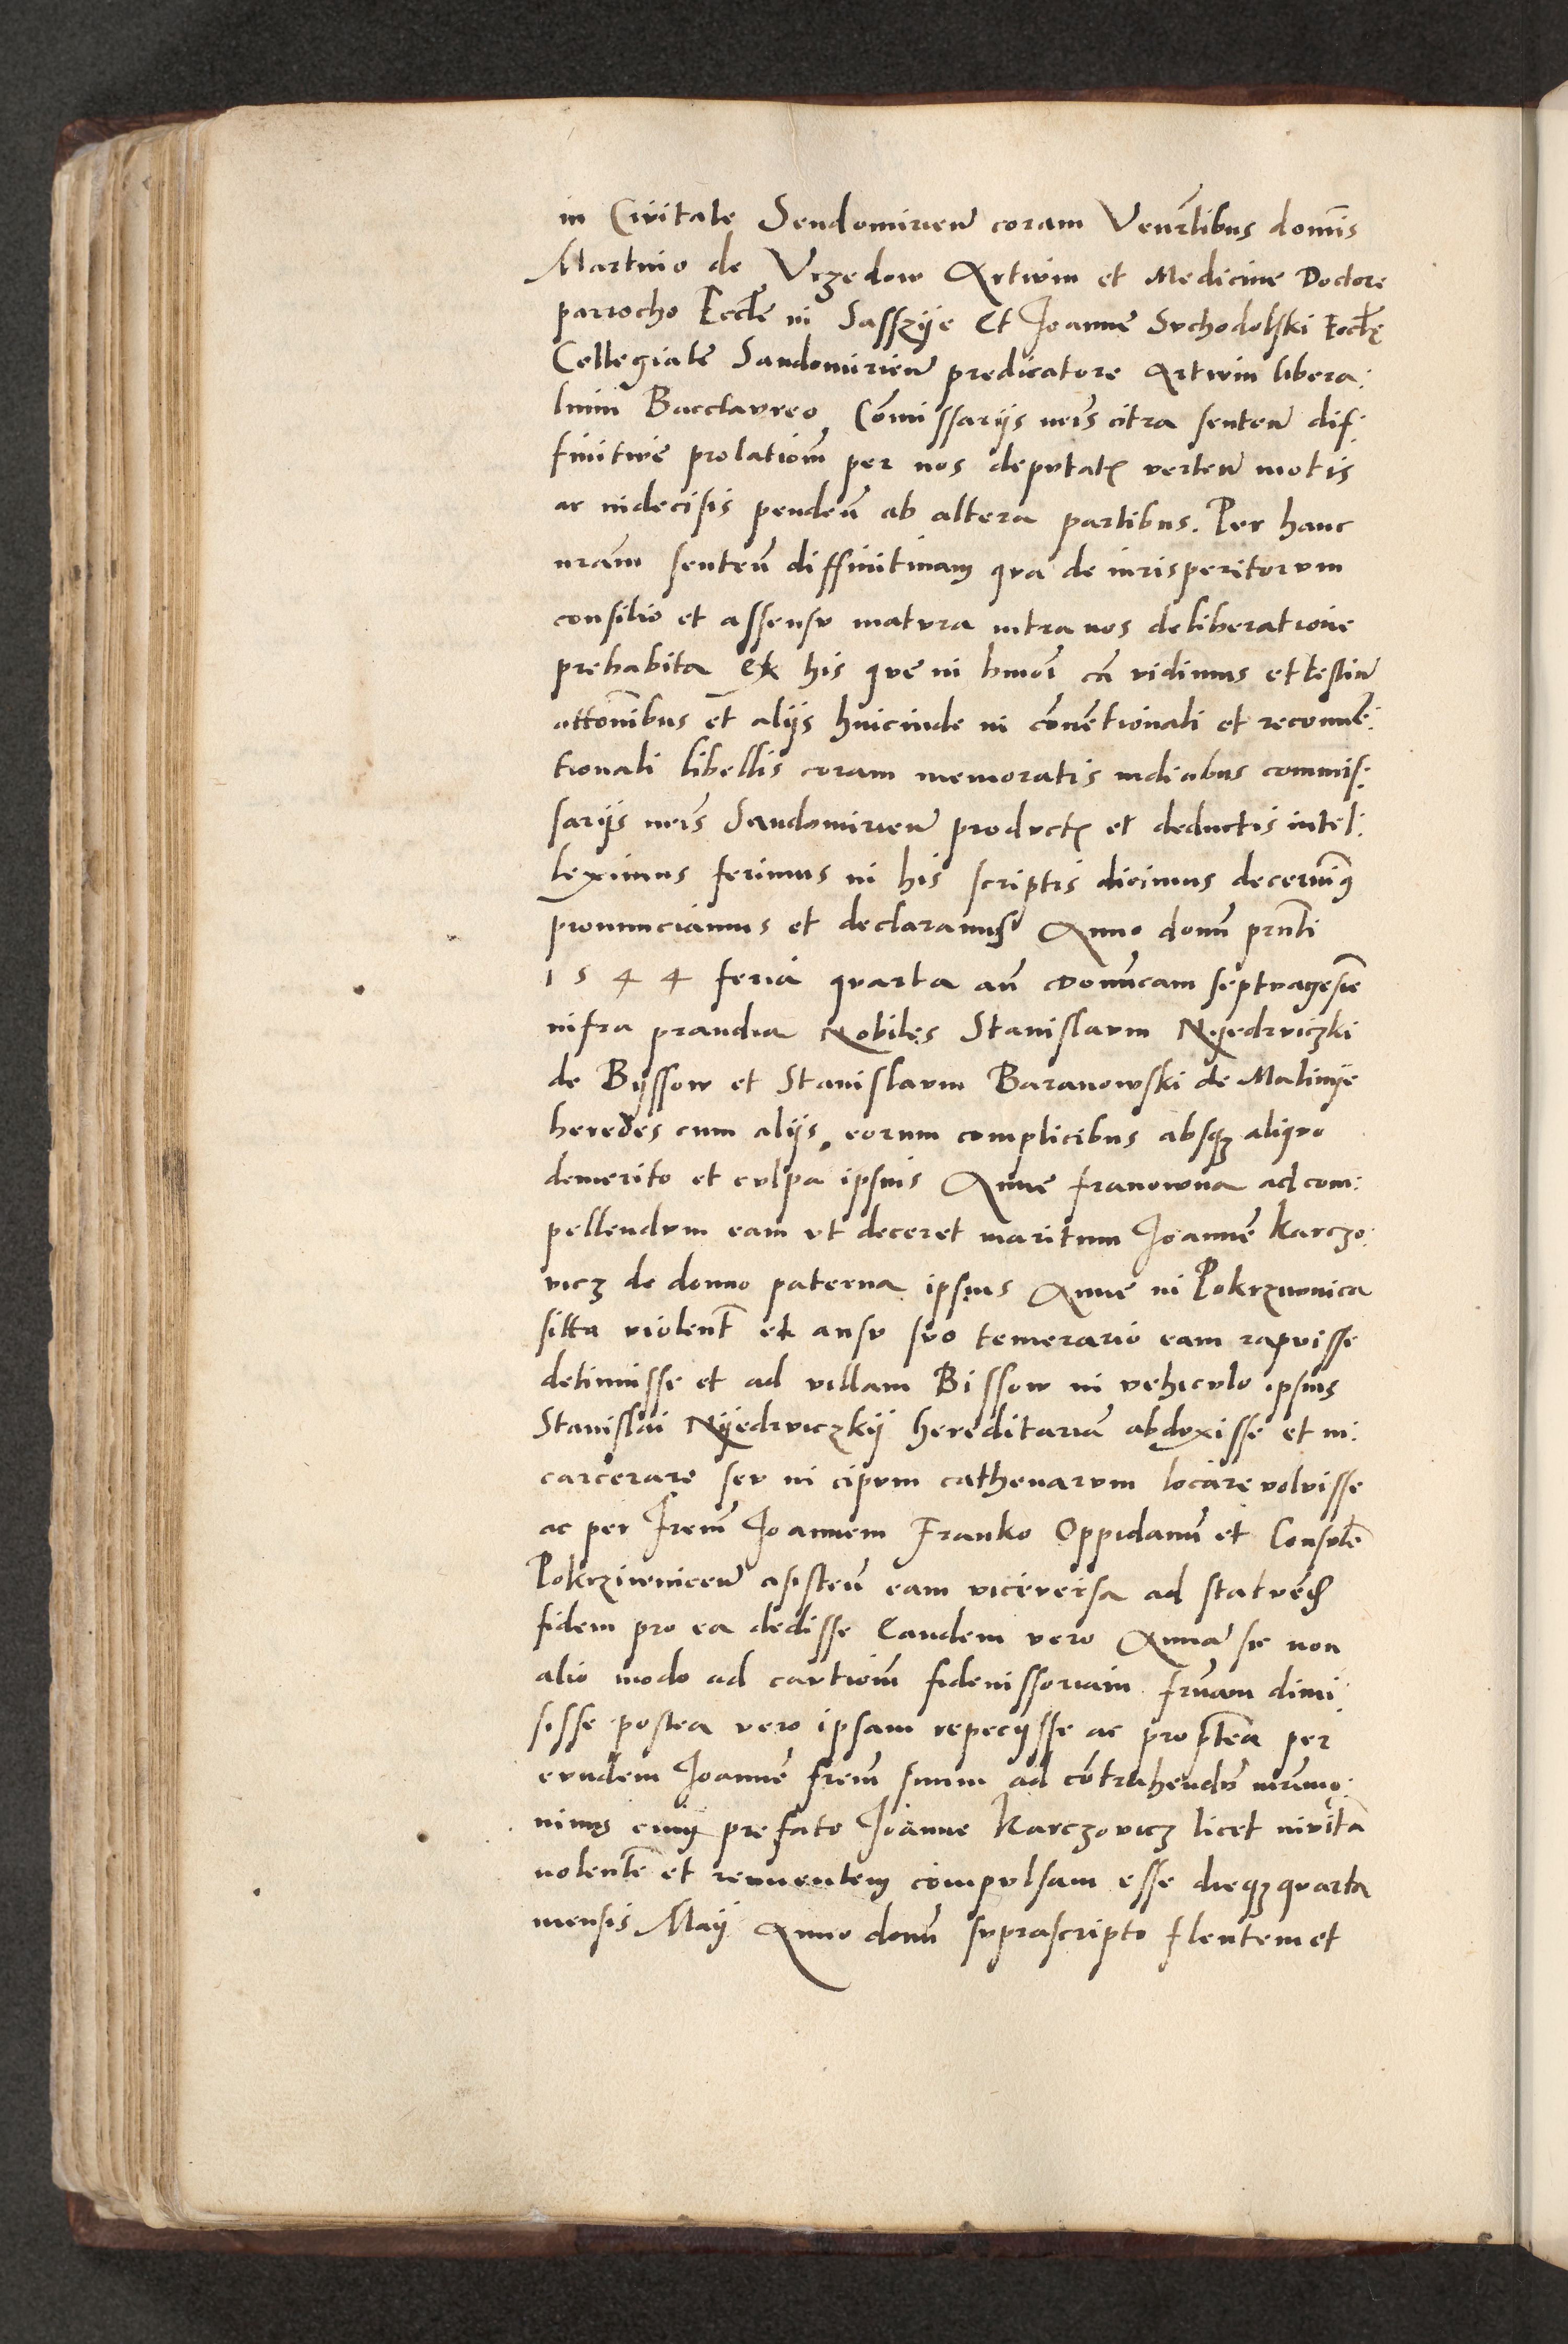 in Civitate Sendomirien coram Venerlibus domīs
Martino de Vrzedow Artium et Medicine Doctore
parrocho Eccłe in Jasszije et Joanne Suchodolski Eccłę
Collegiate Sandomirien predicatore Artium libera:
lium Bacclaureo Cōmissarijs nrīs citra senten dif:
finitive prolationē per nos deputatis verten motis
ac indecisis penden ab altera partibus. Per hanc
nram senten diffinitivam qua de iurisperitorum
consilio et assensu matura intra nos deliberatione
prehabita Ex his que in hmōi cā vidimus et testiū
attōnibus et alijs hincinde in cōnētionali et reconuē:
tionali libellis coram memoratis iudicibus commis:
sarijs nrīs Sandomirien productis et deductis intel:
leximus ferimus in his scriptis dicimus decernimꝰ
pronunciamus et declaramus Anno domī prnti
1544 feria quarta an dominicam septuagesīe
infra prandia Nobiles Stanislaum Nyedrviczki
de Byssow et Stanislaum Baranowski de Malinije
heredes cum alijs eorum complicibus absqꝫ aliquo
demerito et culpa ipsius Anne franowna ad com:
pellendum eam ut deceret maritum Joannē Karczo:
vicz de domo paterna ipsius Anne in Pokrzuvnica
sitta violent et ausu suo temerario eam rapuisse
detinuisse et ad villam Bissow in vehiculo ipsius
Stanislai Nyedrviczkij hereditariā abduxisse et in:
carcerare seu in cipum cathenarum locare voluisse
ac per frem Joannem Franko Oppidanū et Consulē
Pokrziwnicen asisten eam viceversa ad statuēd
fidem pro ea dedisse Eandem vero Annā se non
alio modo ad cautionē fideiussoriam frnam dimi
sisse postea vero ipsam repecijsse ac propterea per
eundem Joannē frem suum ad contrahendū mrimo:
nimꝫ cum prefato Joanne Karczovicz licet invitā
nolentē et renuentem compulsam esse dieqꝫ quarta
mensis Maij Anno domī suprascripto flentem et